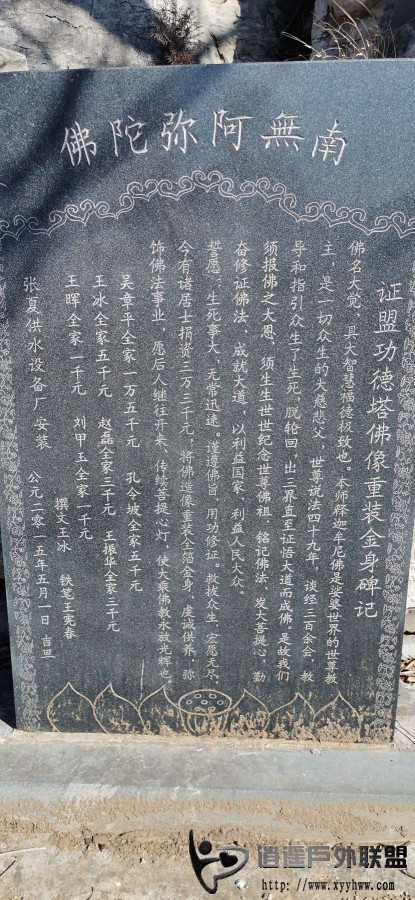 南無阿弥陀佛
证盟功德塔佛像重装金身碑记
佛名大觉，具大智慧福德极致也。本师释迦牟尼佛是娑婆世界的世尊教
主，是一切众生的大慈悲父，世尊说法四十九年，谈经三百余会，教
导和指引众生了生死，脱轮回，出三界直至证悟大道而成佛。是故我们
须报佛之大恩，须生生世世纪念世尊佛祖，铭记佛法，发大菩提心，勤
奋修证佛法，成就大道，以利益国家，利益人民大众。
誓愿：生死事大，无常迅速。谨遵佛旨，用功修证。救拔众生，宏愿无尽。
今有诸居士捐资三万三千元，将佛造像重装全泊金身，虔诚供养，弥
饰佛法事业，愿后人继往开来、传续菩提心灯，使大乘佛教永放光辉也。
吴章平全家一万五千元　孔令坡全家五千元
王冰全家五千元　赵磊全家三千元　王振华全家三千元
王晖全家一千元　刘甲玉全家一千元
撰文王冰　铁笔王宪春
张夏供水设备厂安装　公元二零一五年五月一日　吉旦
逍遥户外联盟
http: //www.xyyhww.com